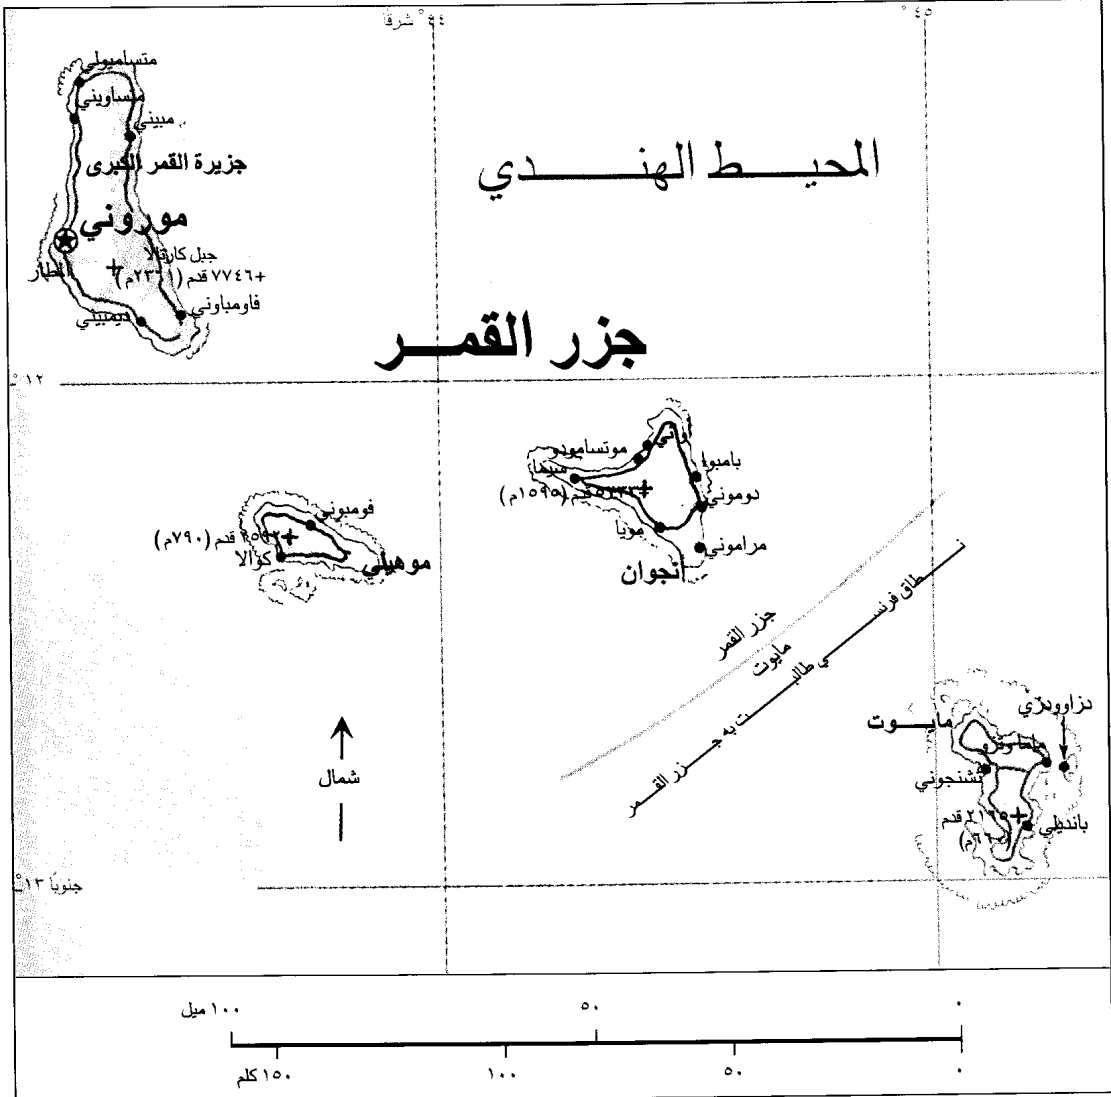 ٤٤ ° شرقا
٤٥ °
متساميولي
متساويني
مبيني
جزيرة القمر الكبرى
المحيط الهندي
موروني
جبل كارتالا
+٧٧٤٦ قدم (٢٣٦١م)
المطار
فاومباوني
ديمبيني
جزر القمر
١٢ °
أواني
موتساموdو
ميما
بامبوا
(١٥٩٥م)
دوموني
مويا
مراموني
أنجوان
فومبوني
قدم (٧٩٠م)
كوالا
موهيلي
جزر القمر
مايوت
نطاق فرنسي طالبت به جزر القمر
دزاوودزي
مايوت
تشنجوني
٢١٦٥ قدم
(٦٦٠م)
بانديلي
شمال
١٣ ° جنوبا
١٠٠ ميل
٥٠
٠
١٥٠ كلم
١٠٠
٥٠
٠